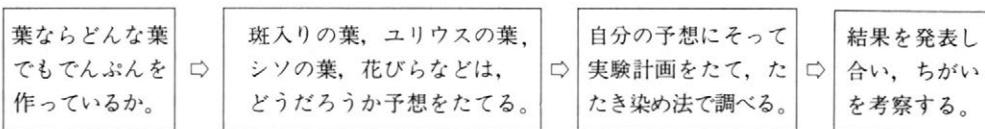 葉ならどんな葉
でもでんぷんを
作っているか。
⇨
斑入りの葉，ユリウスの葉，
シソの葉，花びらなどは，
どうだろうか予想をたてる。
⇨
自分の予想にそって
実験計画をたて，た
たき染め法で調べる。
⇨
結果を発表し
合い，ちがい
を考察する。